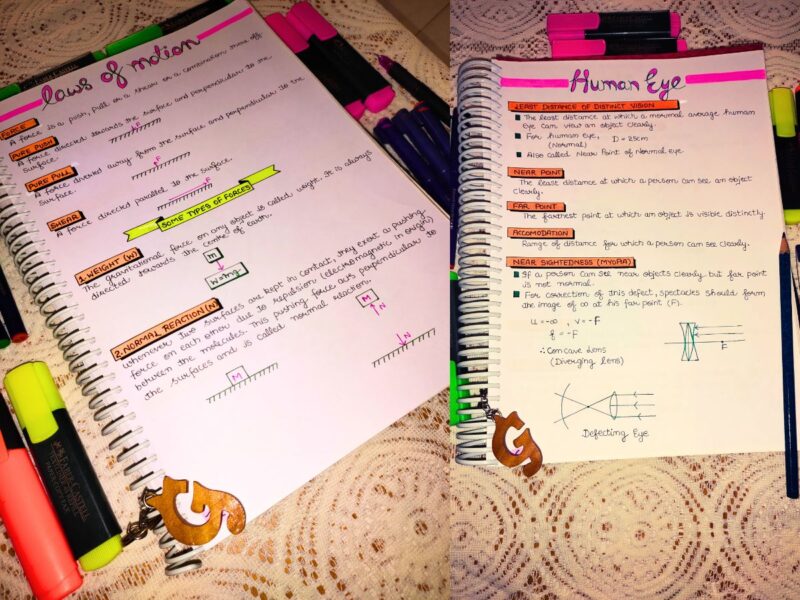 Laws of Motion
FORCE
A force is a push, pull or a shear or a combination there off
PURE PUSH
A force directed towards the surface and perpendicular to the
surface.
F
PURE PULL
A force directed away from the surface and perpendicular to the
surface.
F
SHEAR
A force directed parallel to the surface.
F
SOME TYPES OF FORCES
1. WEIGHT (W)
The gravitational force on any object is called weight. It is always
directed towards the centre of earth.
m
W=mg
2. NORMAL REACTION (N)
Whenever two surfaces are kept in contact, they exert a pushing
force on each other due to repulsion (electromagnetic in origin)
between the molecules. This pushing force acts perpendicular to
the surfaces and is called normal reaction.
M
N
M
N
Human Eye
LEAST DISTANCE OF DISTINCT VISION
The least distance at which a mormal average human
Eye can view an object clearly.
For human eye, D = 25cm
(Normal)
Also called Near Point of Normal eye
NEAR POINT
The least distance at which a person can see an object
clearly.
FAR POINT
The farthest point at which an object is visible distinctly.
ACCOMODATION
Range of distance for which a person can see clearly.
NEAR SIGHTEDNESS (MYOPIA)
If a person can see near objects clearly but far point
is not normal.
For correction of this defect, spectacles should form
the image of ∞ at his far point (F).
u = -∞ , v = -F
f = -F
∴ Concave Lens
(Diverging Lens)
F
Defecting Eye
G